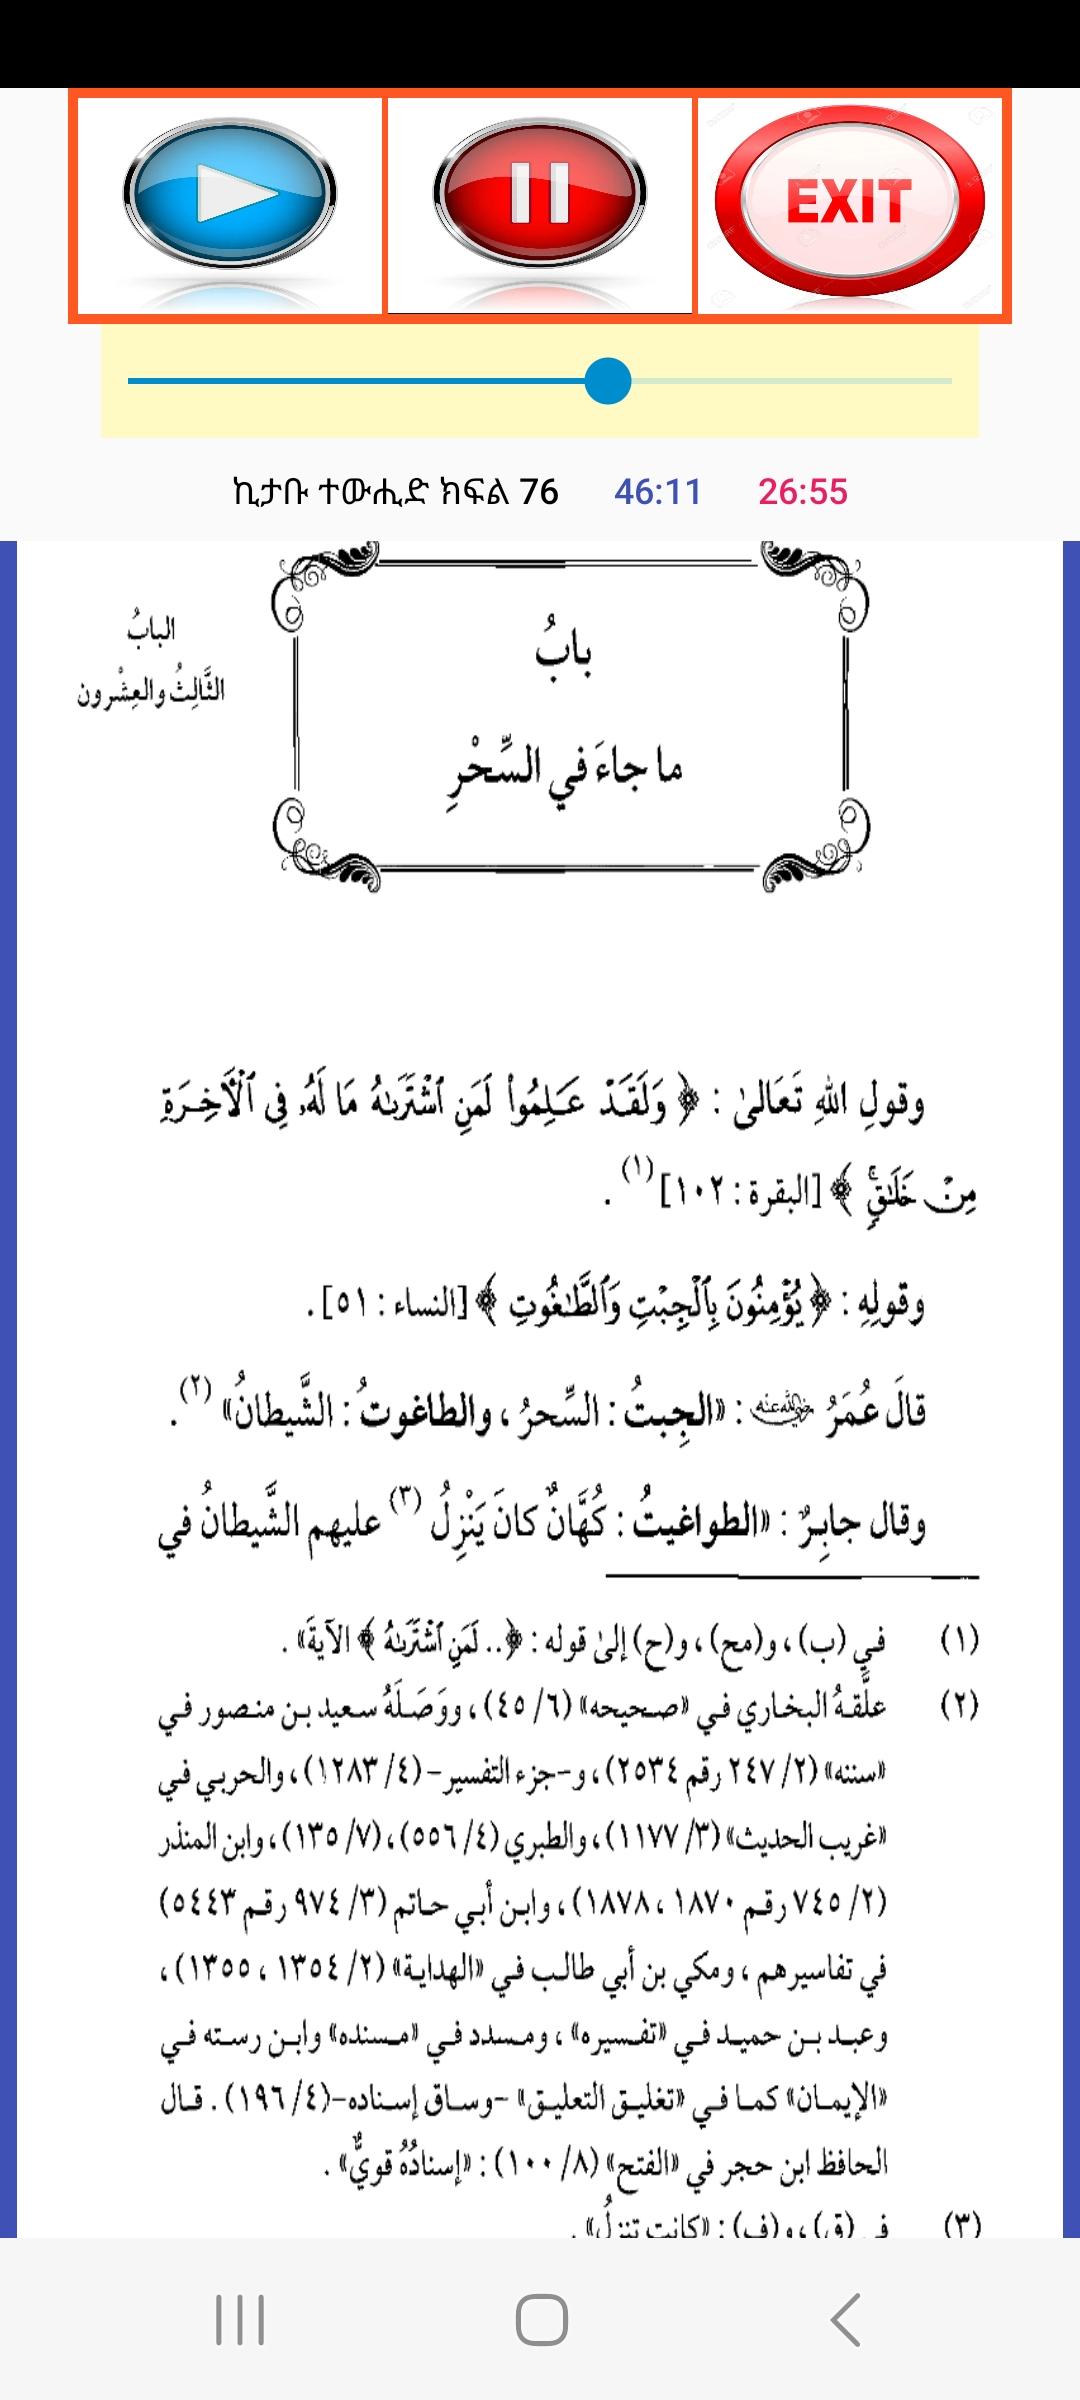 EXIT
ኪታቡ ተውሒድ ክፍል 76 46:11 26:55
البابُ
الثَّالِثُ والعِشْرون
بابُ
ما جاءَ في السِّحْرِ
وقولِ اللهِ تَعَالىٰ : ﴿ وَلَقَدْ عَلِمُوا۟ لَمَنِ ٱشْتَرَىٰهُ مَا لَهُۥ فِى ٱلْأَخِرَةِ
مِنْ خَلَٰقٍۚ ﴾ [البقرة : ١٠٢] (١) .
وقولِهِ : ﴿ يُؤْمِنُونَ بِٱلْجِبْتِ وَٱلطَّٰغُوتِ ﴾ [النساء : ٥١] .
قالَ عُمَرُ رضي الله عنه : «الجِبتُ : السِّحرُ ، والطاغوتُ : الشَّيطانُ» (٢) .
وقال جابِرٌ : «الطواغيتُ : كُهَّانٌ كانَ يَنْزِلُ (٣) عليهم الشَّيطانُ في
(١) في (ب) ، و(مح) ، و(ح) إلىٰ قوله : ﴿ .. لَمَنِ ٱشْتَرَىٰهُ ﴾ الآيةَ» .
(٢) علَّقهُ البخاري في «صحيحه» (٦/ ٤٥) ، ووَصَلَهُ سعيد بن منصور في
«سننه» (٢/ ٢٤٧ رقم ٢٥٣٤) ، و-جزء التفسير- (٤/ ١٢٨٣) ، والحربي في
«غريب الحديث» (٣/ ١١٧٧) ، والطبري (٤/ ٥٥٦) ، (٧/ ١٣٥) ، وابن المنذر
(٢/ ٧٤٥ رقم ١٨٧٠ ، ١٨٧٨) ، وابن أبي حاتم (٣/ ٩٧٤ رقم ٥٤٤٣)
في تفاسيرهم ، ومكي بن أبي طالب في «الهداية» (٢/ ١٣٥٤ ، ١٣٥٥) ،
وعبد بن حميد في «تفسيره» ، ومسدد في «مسنده» وابن رسته في
«الإيمان» كما في «تغليق التعليق» -وساق إسناده- (٤/ ١٩٦) . قال
الحافظ ابن حجر في «الفتح» (٨/ ١٠٠) : «إسنادُهُ قويٌّ» .
(٣) في (ق) ، و(ف) : «كانت تنزلُ» .